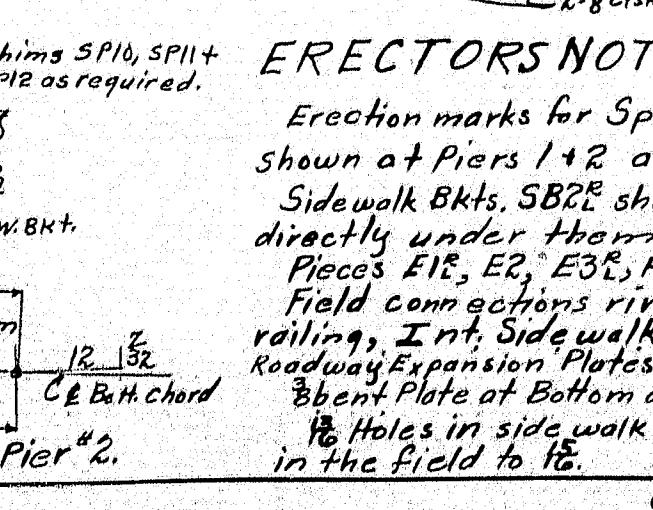 hims SP10, SP11 +
P12 as required.
W. Bkt.
12
7/32
C ℄ Bott. chord
Pier #2.
ERECTORS NOT
Erection marks for Sp
shown at Piers 1 + 2 a
Sidewalk Bkts. SB2R/L sh
directly under them
Pieces E1R/L, E2, E3R/L,
Field connections riv
railing, Int. Sidewalk
Roadway Expansion Plates
3/8 bent Plate at Bottom
13/16 Holes in side walk
in the field to 15/16.